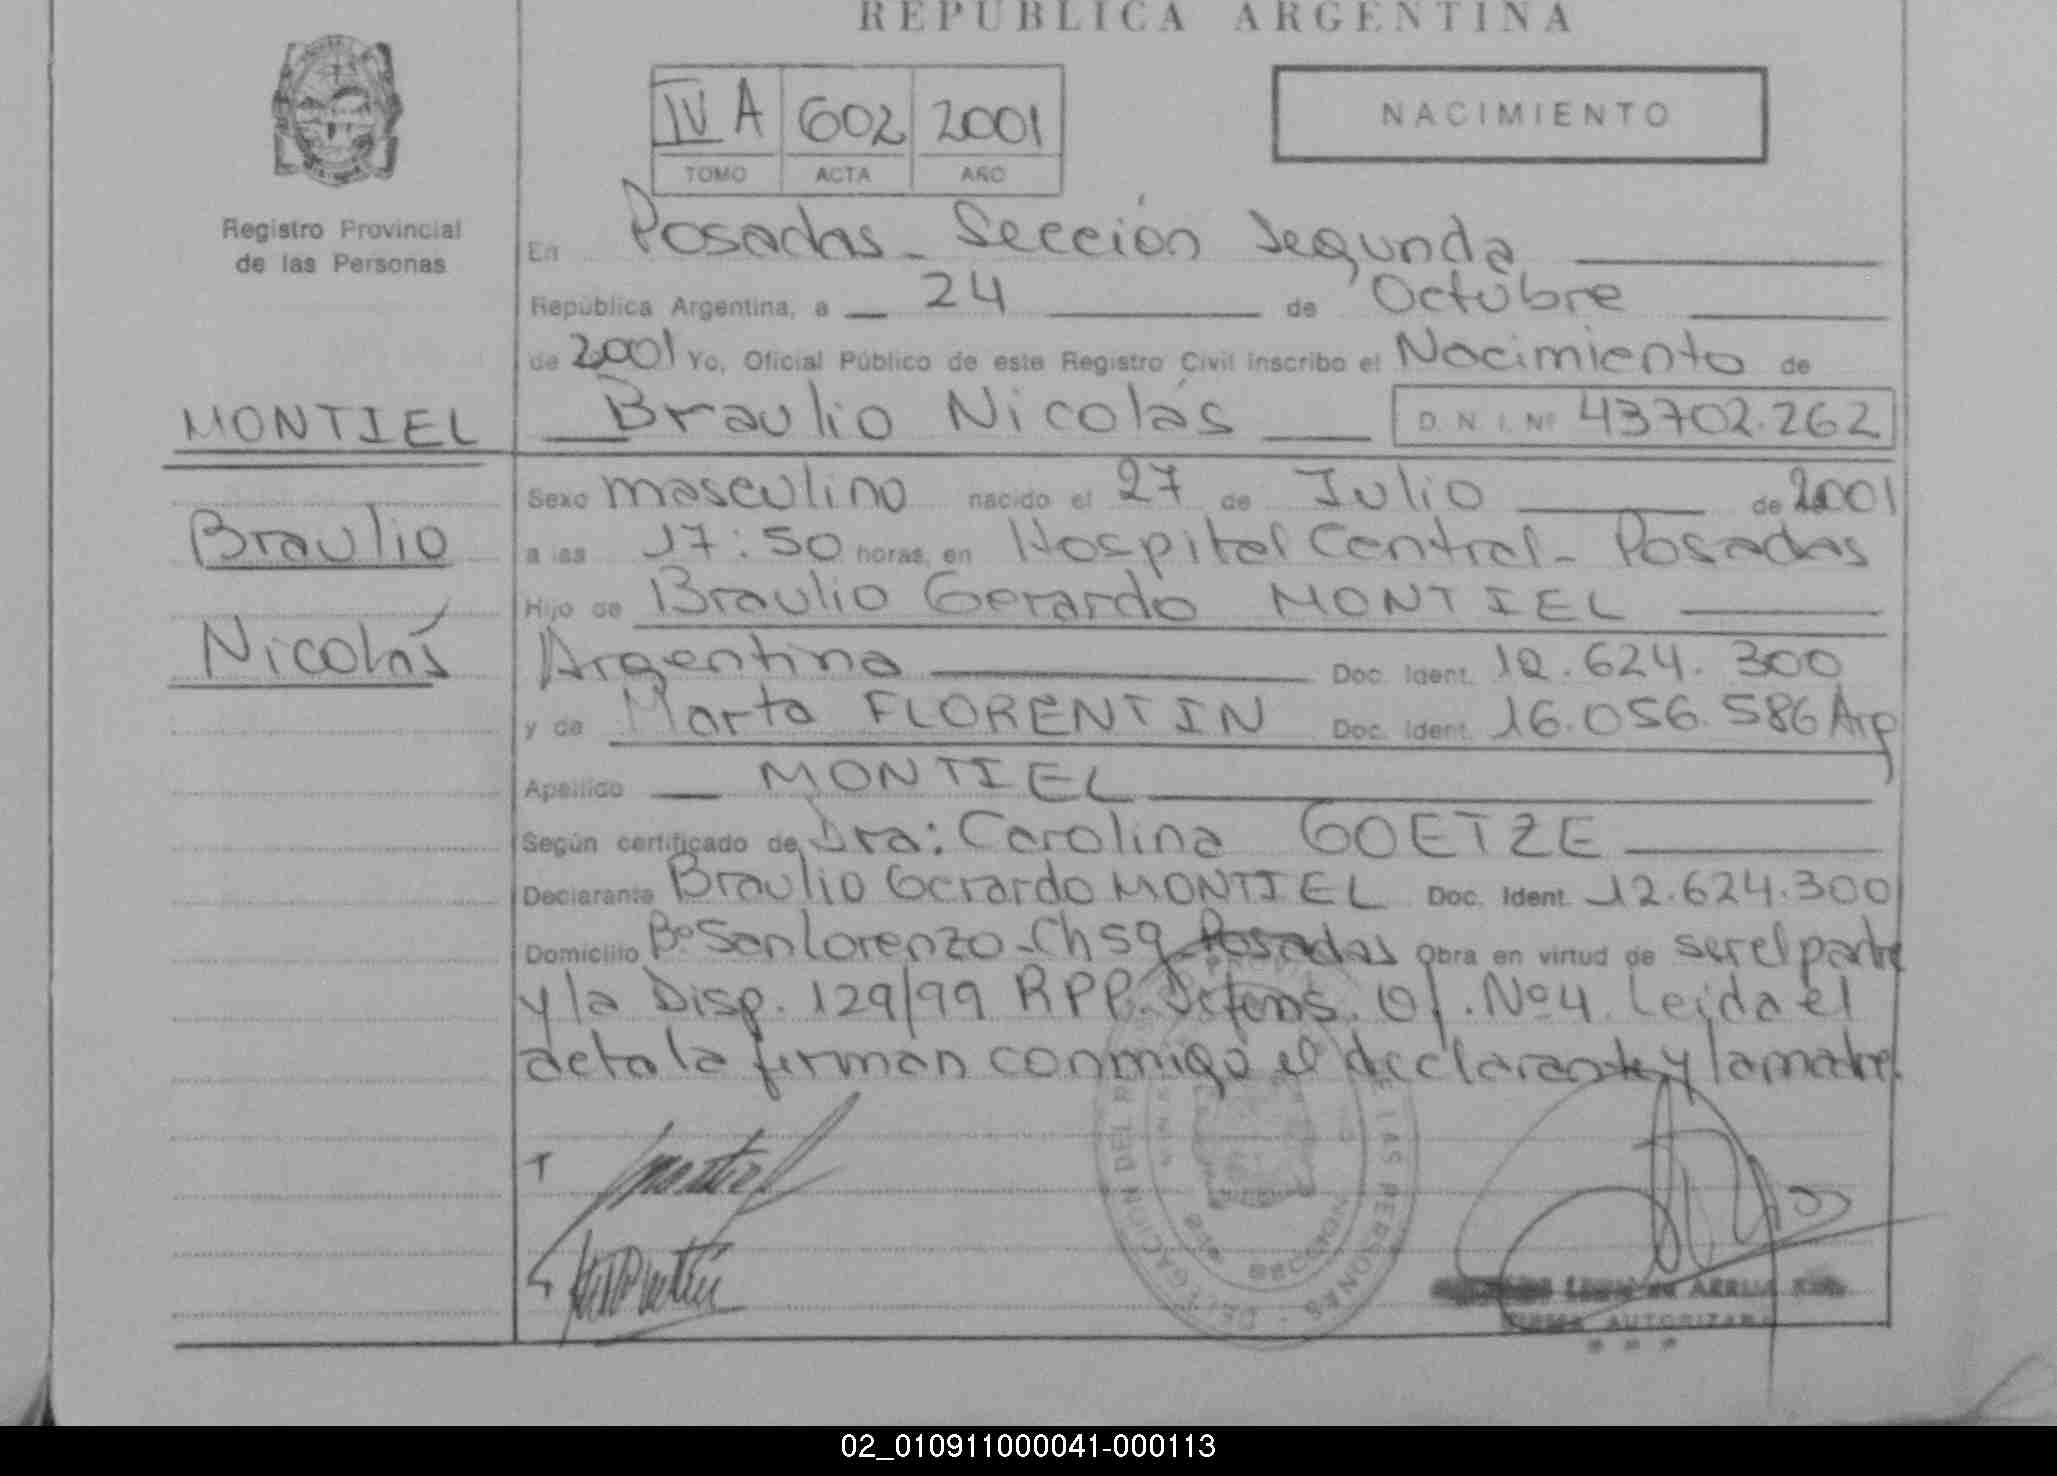 REPUBLICA ARGENTINA
IV A 602 2001
TOMO ACTA AÑO
NACIMIENTO
Registro Provincial
de las Personas
En Posadas - Sección Segunda
República Argentina, a 24 de Octubre
de 2001 Yo, Oficial Público de este Registro Civil inscribo el Nacimiento de
MONTIEL
Braulio Nicolás D. N. I. Nº 43702.262
Sexo masculino nacido el 27 de Julio de 2001
Braulio
a las 17:50 horas, en Hospital Central - Posadas
Hijo de Braulio Gerardo MONTIEL
Nicolás
Argentina Doc. Ident. 12.624.300
y de Marta FLORENTIN Doc. Ident. 16.056.586 Arg
Apellido MONTIEL
Según certificado de Dra: Carolina GOETZE
Declarante Braulio Gerardo MONTIEL Doc. Ident. 12.624.300
Domicilio Bº San Lorenzo - Ch 59 Posadas Obra en virtud de ser el parte
y la Disp. 129/99 RPP. Of. Nº 4. Leída el
acta la firman conmigo el declarante y la madre.
DELEGACION DEL DE LAS PERSONAS
FIRMA AUTORIZADA
02_010911000041-000113